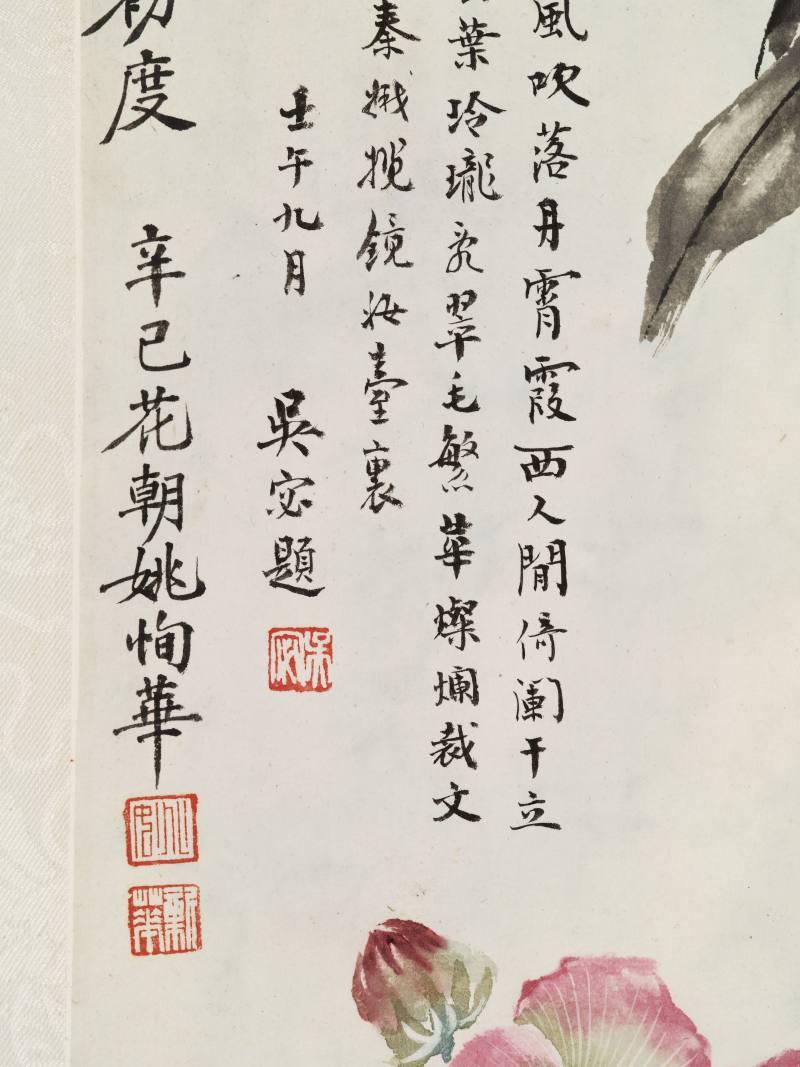 風吹落丹霄霞西人閒倚闌干立
葉玲瓏翠毛繁華燦爛裁文
秦娥攬鏡妝臺裏
壬午九月 吳宓題
初度 辛巳花朝姚恂華